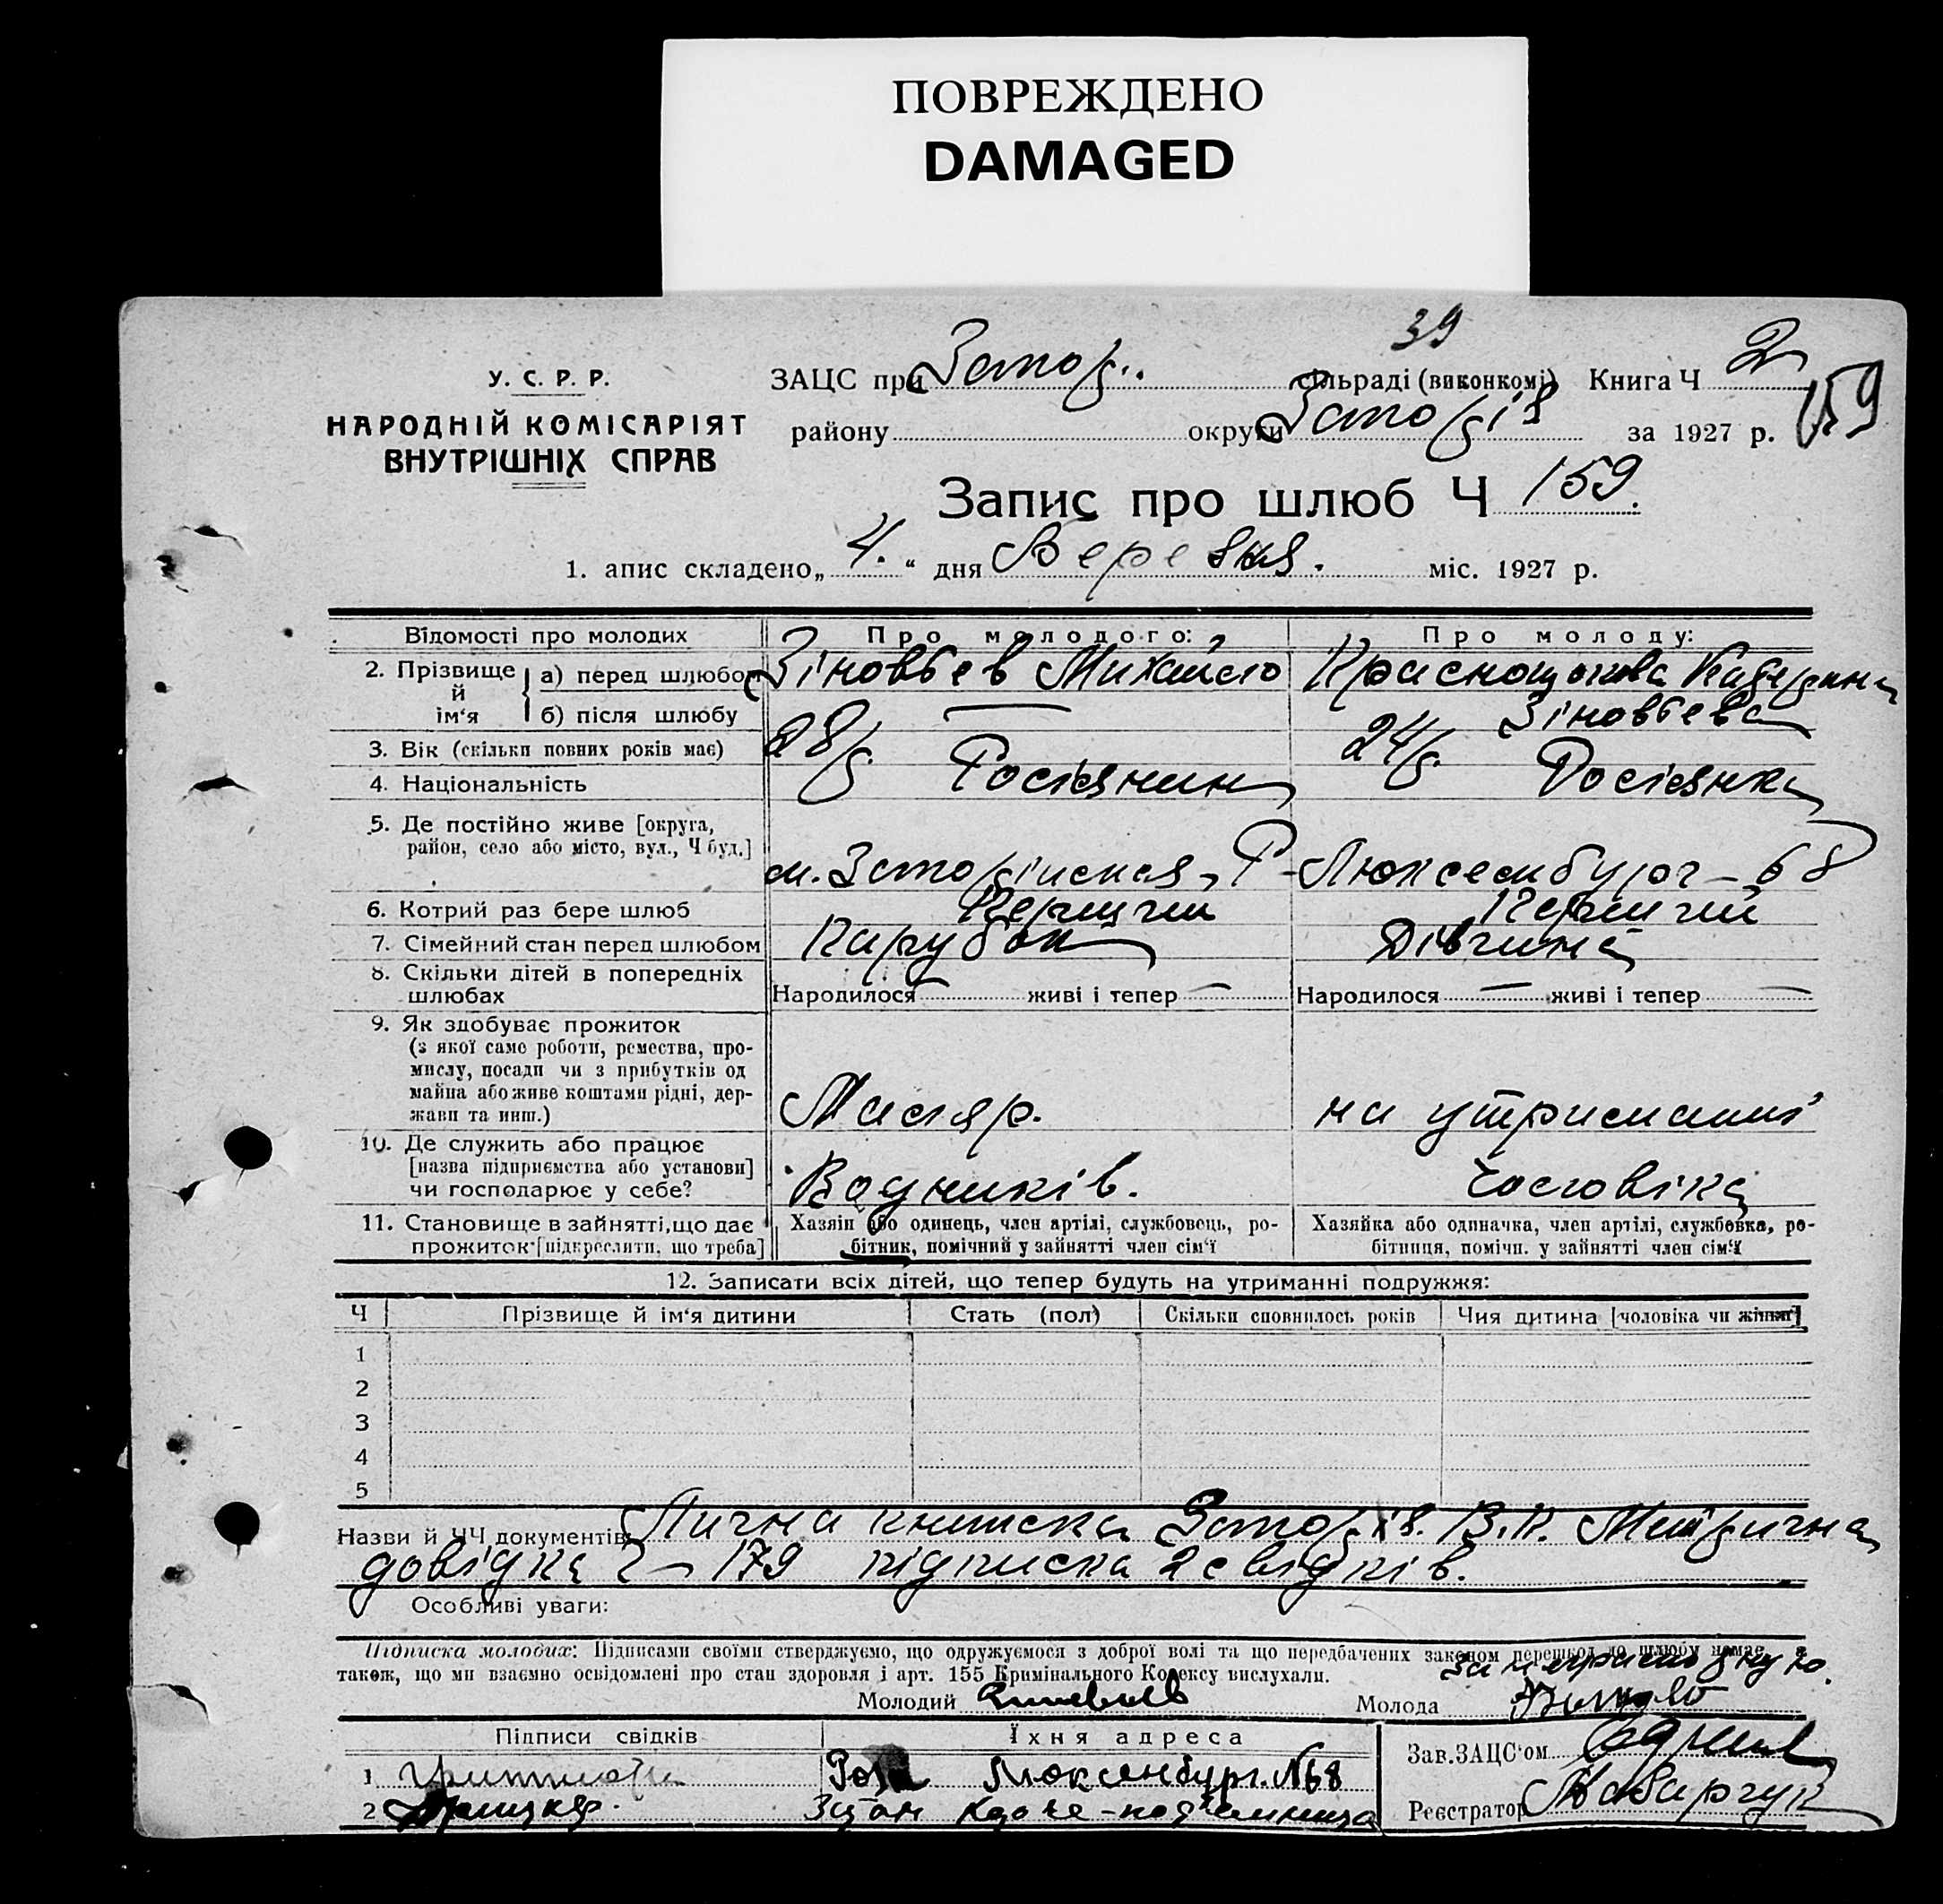 ПОВРЕЖДЕНО
DAMAGED
39
У. С. Р. Р.
НАРОДНІЙ КОМІСАРІЯТ
ВНУТРІШНІХ СПРАВ
ЗАЦС при Запор.. сільраді (виконкомі) Книга Ч 2
району округи Запоріз за 1927 р. 159
Запис про шлюб Ч 159.
1. апис складено „ 4. “ дня Березня. міс. 1927 р.
Відомості про молодих Про молодого: Про молоду:
2. Прізвище й ім‘я
а) перед шлюбом Зіновьев Михайло Краснощокова Катерина
б) після шлюбу — Зіновьева
3. Вік (скільки повних років має) 28/р. 24/р.
4. Національність Росіянин Росіянка
5. Де постійно живе [округа,
район, село або місто, вул., Ч буд.]
м. Запоріжжя, Р-Люксембург – 68
6. Котрий раз бере шлюб Перший Перший
7. Сімейний стан перед шлюбом Парубок Дівчина
8. Скільки дітей в попередніх
шлюбах Народилося — живі і тепер — Народилося — живі і тепер —
9. Як здобуває прожиток
(з якої саме роботи, ремества, про-
мислу, посади чи з прибутків од
майна або живе коштами рідні, дер-
жави та инш.) Маляр. на утриманні
10. Де служить або працює
[назва підприємства або установи]
чи господарює у себе? Водників. Чоловіка
11. Становище в зайнятті, що дає Хазяін або одинець, член артілі, службовець, ро- Хазяйка або одиначка, член артілі, службовка, ро-
прожиток [підкреслити, що треба] бітник, помічний у зайнятті член сім‘ї бітниця, помічн. у зайнятті член сім‘ї
12. Записати всіх дітей, що тепер будуть на утриманні подружжя:
Ч Прізвище й ім‘я дитини Стать (пол) Скільки сповнилось років Чия дитина [чоловіка чи жінки]
1
2
3
4
5
Назви й ЧЧ документів: Лична книжка В.К. Метрична
довідка 179 підписка 2 свідків.
Особливі уваги:
Підписка молодих: Підписами своїми стверджуємо, що одружуємося з доброї волі та що передбачених законом перешкод до шлюбу немає, а
також, що ми взаємно освідомлені про стан здоровля і арт. 155 Кримінального Кодексу вислухали.
Молодий Молода
Підписи свідків Їхня адреса Зав. ЗАЦС‘ом
1 Роза Люксенбург. №68
2
Реєстратор